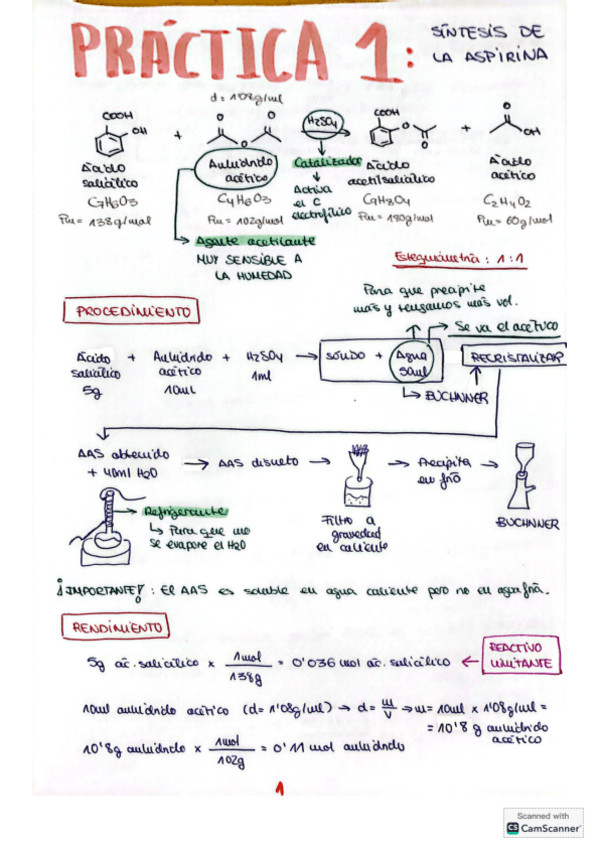 PRÁCTICA 1: SÍNTESIS DE
LA ASPIRINA
d = 1'08g/ml
COOH
OH
+
O O
O
H₂SO₄
COOH
O
O
+
O
OH
Ácido
salicílico
Anhídrido
acético
Catalizador
Ácido
acetilsalicílico
Ácido
acético
C₇H₆O₃
C₄H₆O₃
Activa
el C
electrofílico
C₉H₈O₄
C₂H₄O₂
Pm = 138g/mol
Pm = 102g/mol
Pm = 180g/mol
Pm = 60g/mol
Agente acetilante
MUY SENSIBLE A
LA HUMEDAD
Estequiometría: 1:1
Para que precipite
más y tengamos más vol.
PROCEDIMIENTO
→ Se va el acético
Ácido
salicílico
5g
+ Anhídrido
acético
10ml
+ H₂SO₄
1ml
→ SÓLIDO + Agua
50ml
RECRISTALIZAR
↳ BÜCHNNER
AAS obtenido
+ 40ml H₂O
→ AAS disuelto →
→ Precipita
en frío →
Filtro a
gravedad
en caliente
BUCHNNER
→ Refrigerante
↳ Para que no
se evapore el H₂O
¡IMPORTANTE!: El AAS es soluble en agua caliente pero no en agua fría.
RENDIMIENTO
5g ác. salicílico x 1mol / 138g = 0'036 mol ác. salicílico ← REACTIVO
LIMITANTE
10ml anhídrido acético (d= 1'08g/ml) → d= m/v → m= 10ml x 1'08g/ml =
= 10'8 g anhídrido
acético
10'8g anhídrido x 1mol / 102g = 0'11 mol anhídrido
1
Scanned with
CS CamScanner